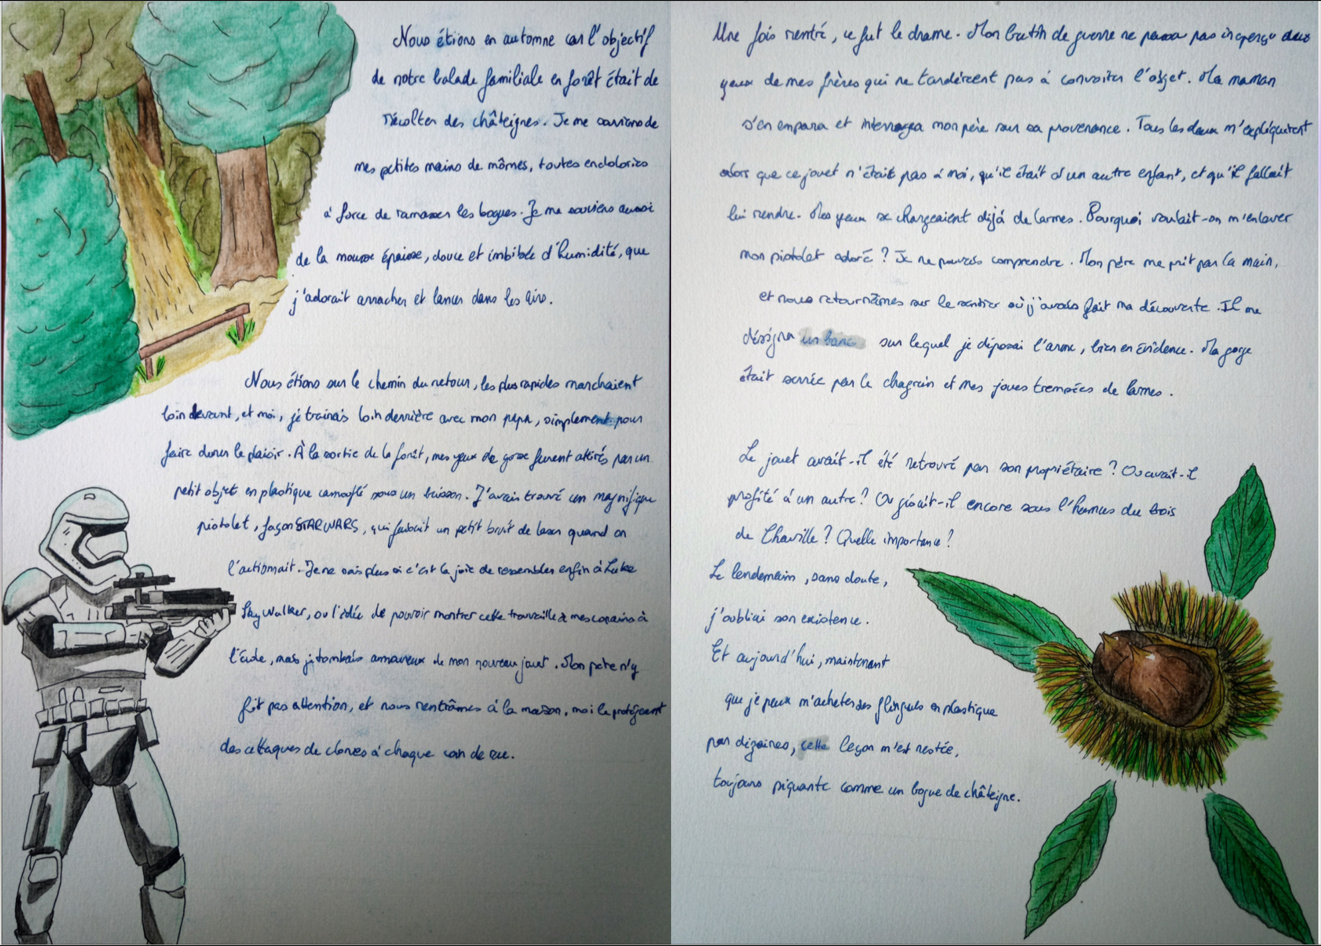 Nous étions en automne car l'objectif
de notre balade familiale en forêt était de
récolter des châteignes. Je me souviens de
mes petites mains de mômes, toutes endolories
à force de ramasser les bogues. Je me souviens aussi
de la mousse épaisse, douce et imbibée d'humidité, que
j'adorait arracher et lancer dans les airs.
Nous étions sur le chemin du retour, les plus rapides marchaient
loin devant, et moi, je trainais loin derrière avec mon papa, simplement pour
faire durer le plaisir. À la sortie de la forêt, mes yeux de gosse furent attirés par un
petit objet en plastique camouflé sous un buisson. J'avais trouvé un magnifique
pistolet, façon STAR WARS, qui faisait un petit bruit de laser quand on
l'actionnait. Je ne sais plus si c'est la joie de ressembler enfin à Luke
SkyWalker, ou l'idée de pouvoir montrer cette trouvaille à mes copains à
l'école, mais je tombais amoureux de mon nouveau jouet. Mon père n'y
fit pas attention, et nous rentrâmes à la maison, moi le protégeant
des attaques de clones à chaque coin de rue.
Une fois rentré, ce fut le drame. Mon butin de guerre ne passa pas inaperçu aux
yeux de mes frères qui ne tardèrent pas à convoiter l'objet. Ma maman
s'en empara et interrogea mon père sur sa provenance. Tous les deux m'expliquèrent
alors que ce jouet n'était pas à moi, qu'il était d'un autre enfant, et qu'il fallait
lui rendre. Mes yeux se chargeaient déjà de larmes. Pourquoi voulait-on m'enlever
mon pistolet adoré ? Je ne pouvais comprendre. Mon père me prit par la main,
et nous retournâmes sur le sentier où j'avais fait ma découverte. Il me
désigna un banc sur lequel je déposai l'arme, bien en évidence. Ma gorge
était serrée par le chagrin et mes joues trempées de larmes.
Le jouet avait-il été retrouvé par son propriétaire ? Ou avait-il
profité à un autre ? Ou gisait-il encore sous l'humus du bois
de Chaville ? Quelle importance ?
Le lendemain, sans doute,
j'oubliai son existence.
Et aujourd'hui, maintenant
que je peux m'acheter des flingues en plastique
par dizaines, cette leçon m'est restée,
toujours piquante comme un bogue de châteigne.